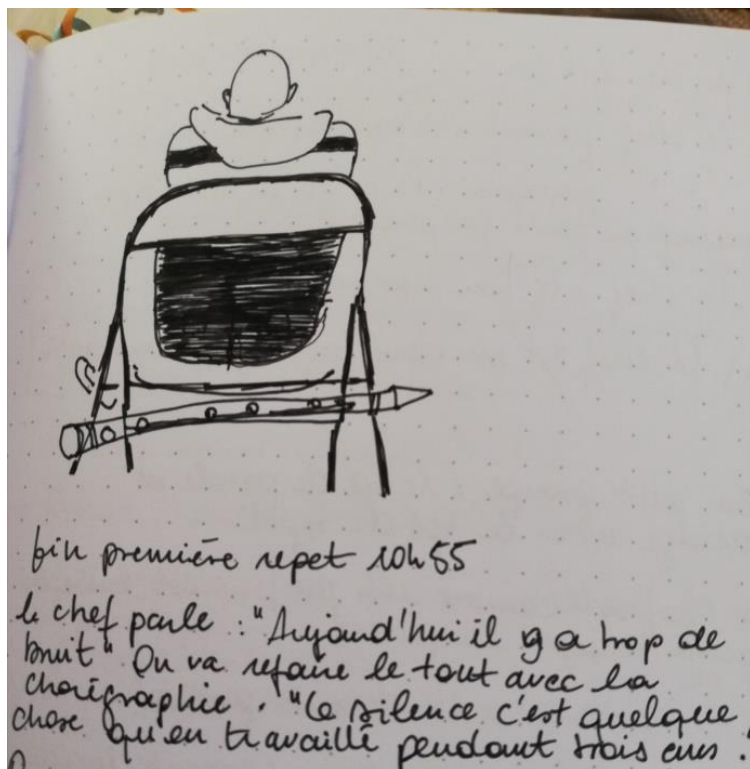 fin première repet 10h55
le chef parle : "Aujourd'hui il y a trop de
bruit" On va refaire le tout avec la
chorégraphie. "Le silence c'est quelque
chose qu'en travaille pendant trois ans :